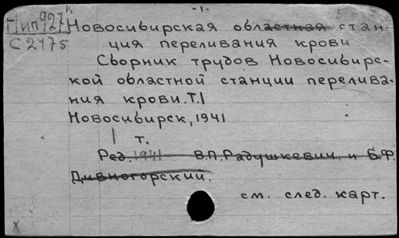 - 1 -
Г/ип927к Новосибирская областная стан-
С2475 ция переливания крови
Сборник трудов Новосибирс-
кой областной станции перелива-
ния крови. Т.1
Новосибирск, 1941
1 т.
Ред. 1941 В.П. Радушкевич и Б.Ф.
Дивногорский.
см. след. карт.
х